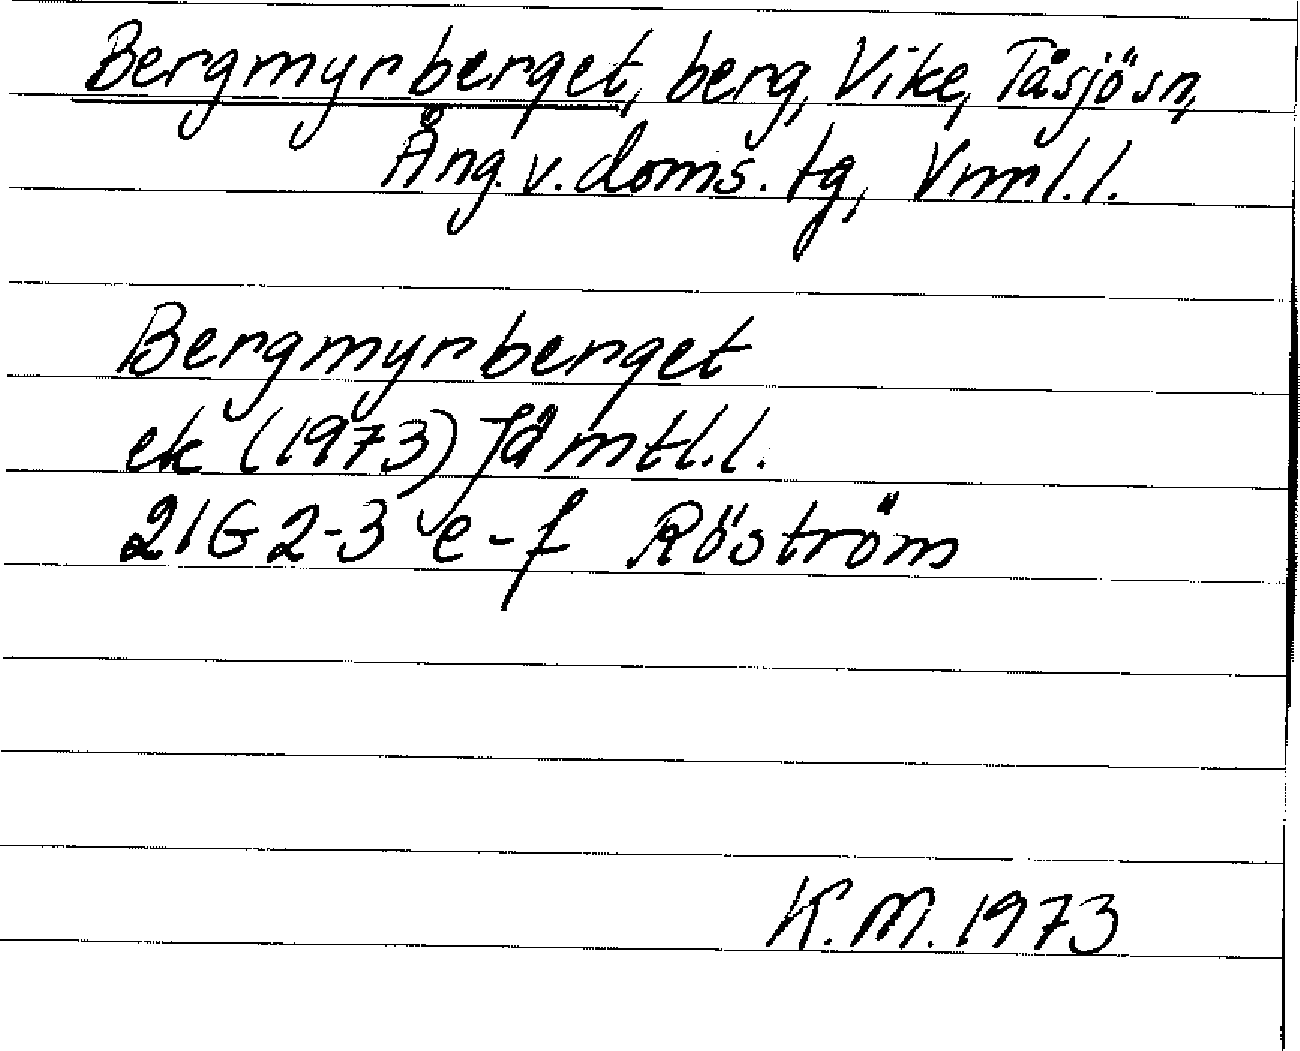 Bergmyrberget, berg, Vike, Tåsjösn,
Ång. v. doms. tg, Vnrl. l.
Bergmyrberget
ek (1973) Jämtl. l.
21G 2-3 e-f Röström
K. M. 1973